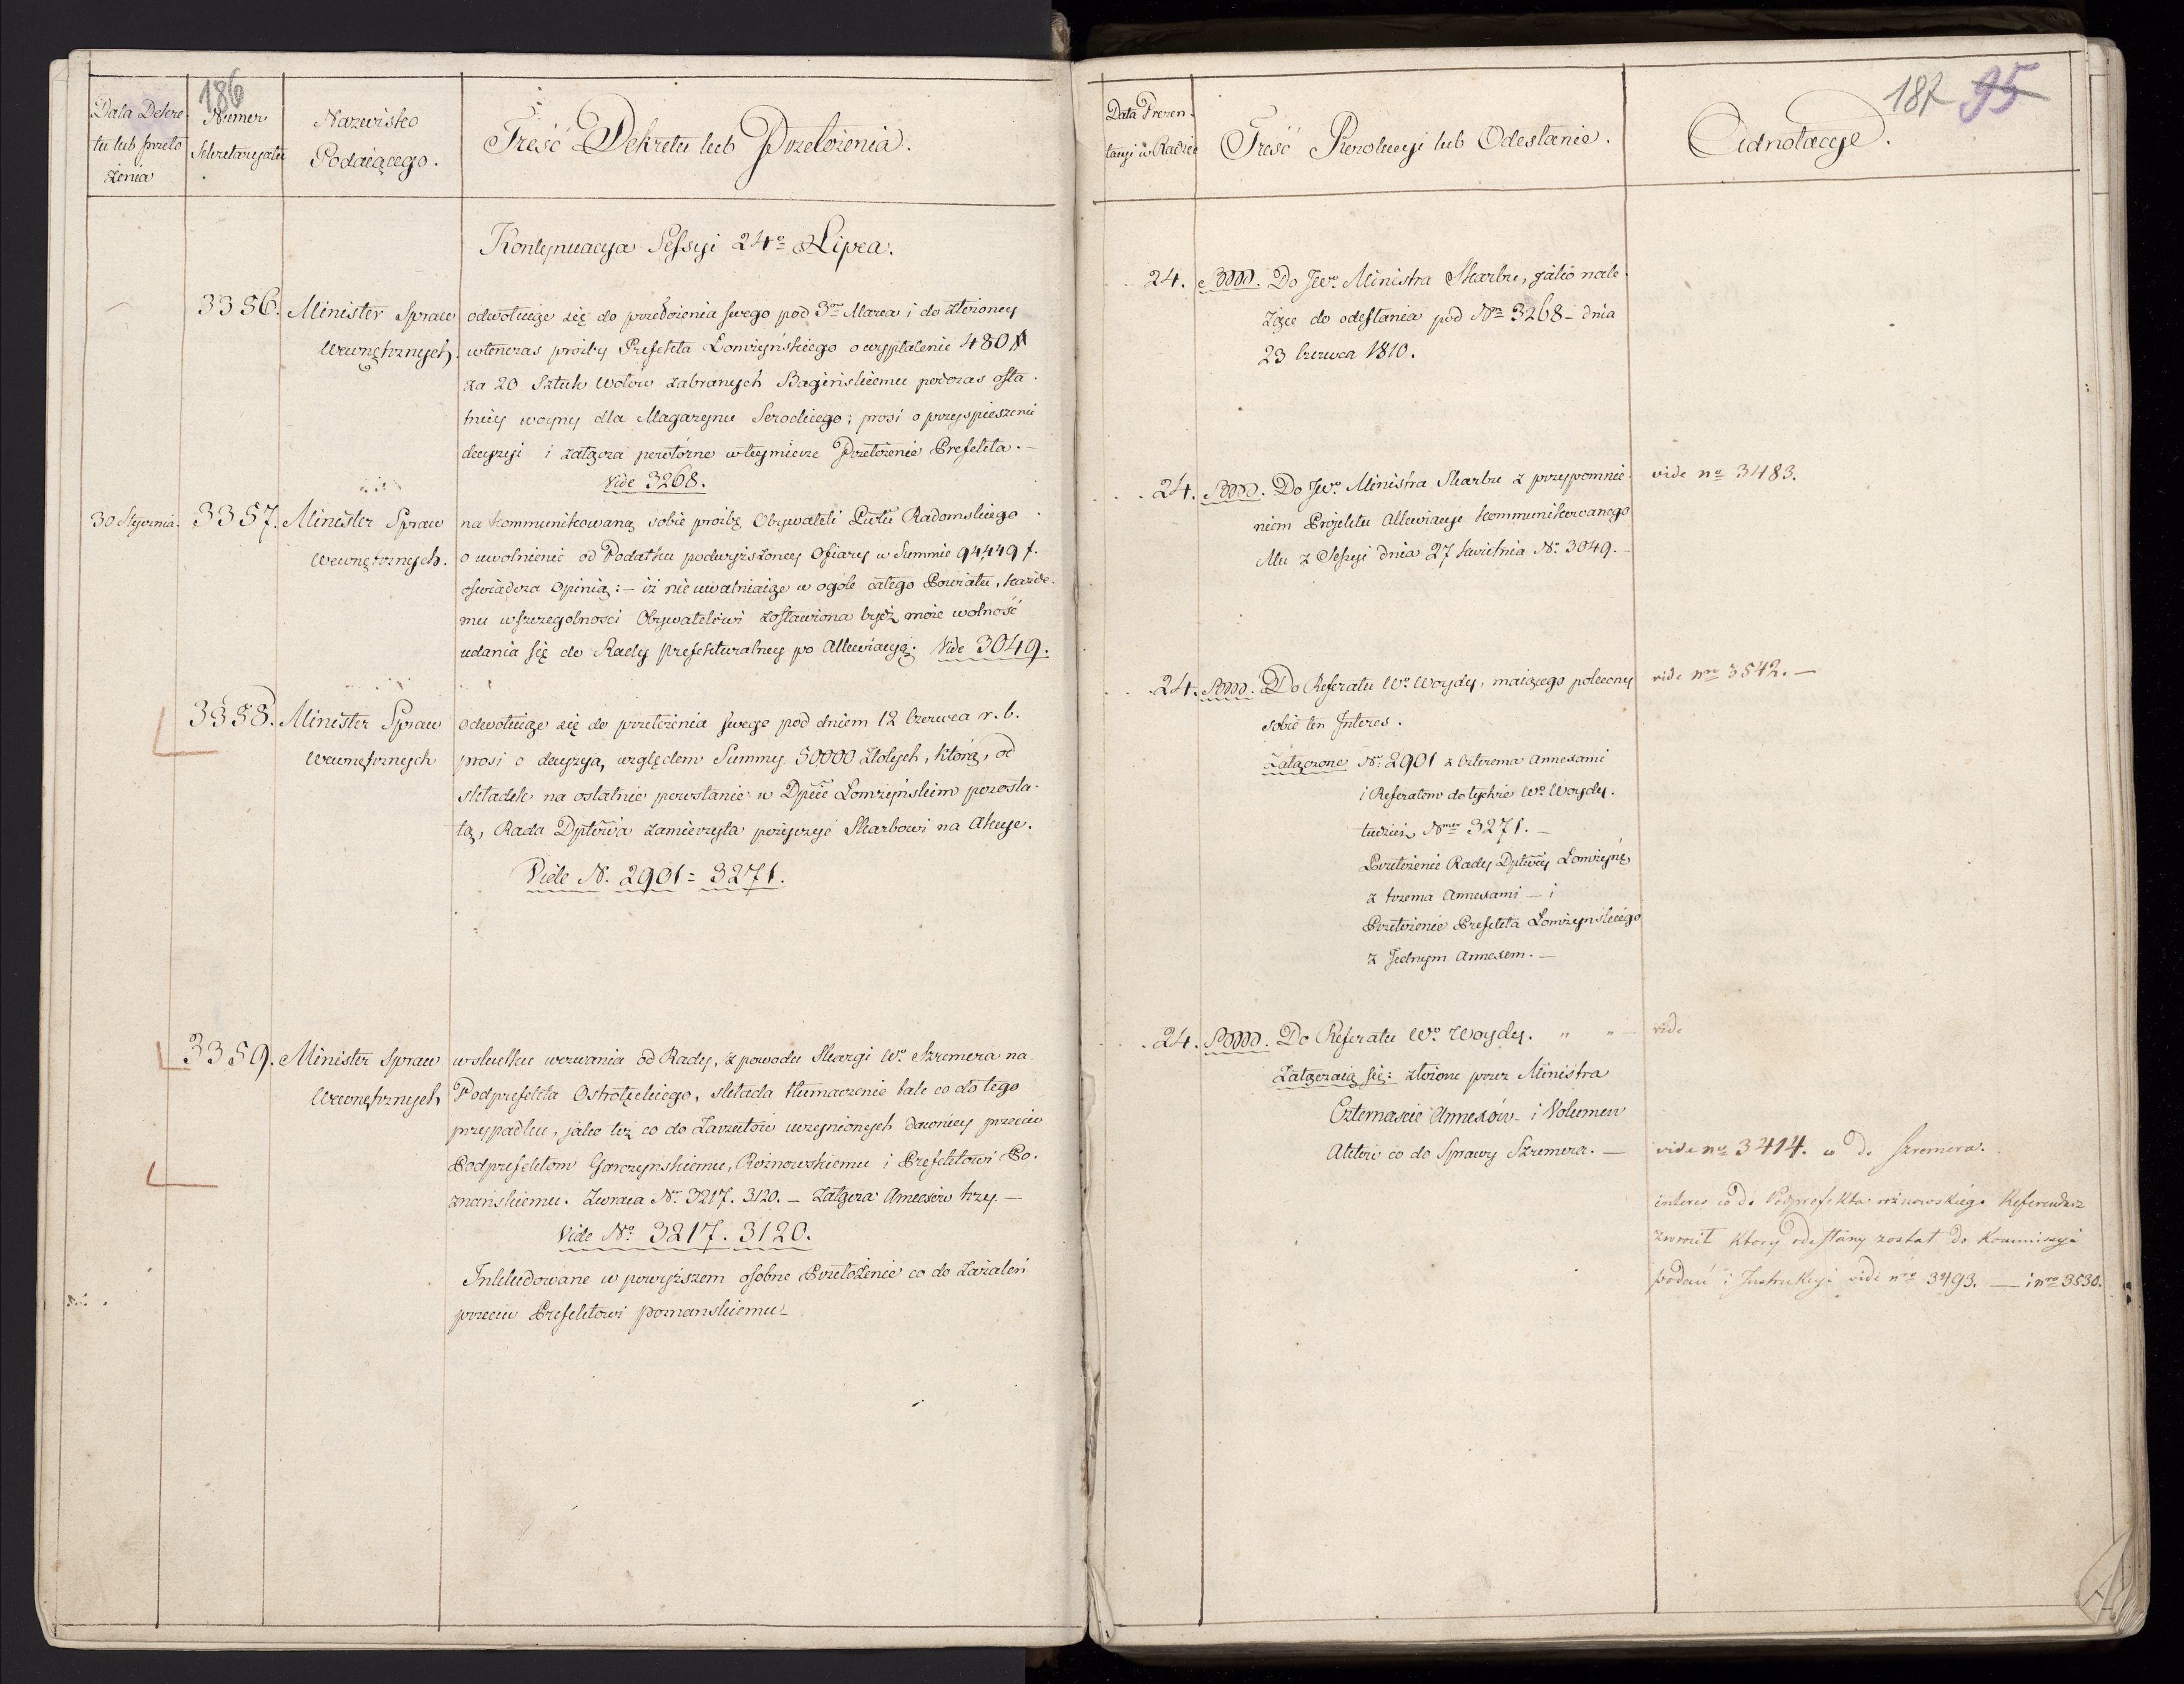 186
Data Dekre-
tu lub przeło
żenia
Numer
Sekretaryatu
Nazwisko
Podaiącego.
Treść Dekretu lub Przełożenia.
Kontynuacya Sessyi 24º Lipca.
3356. Minister Spraw
Wewnętrznych.
odwołuiąc się do przełożenia swego pod 3m Marca i do złożoney
wtenczas prożby Prefekta Łomżyńskiego o wypłatenie 480
za 20 Sztuk wołow zabranych Bagińskiemu podczas osta-
tniey woyny dla Magazynu Serockiego; prosi o przyspieszenie
decyzyi i załącza powtórne w tey mierze Przełożenie Prefekta. —
Vide 3268.
30 Stycznia. 3357. Minister Spraw
Wewnętrznych.
na kommunikowaną sobie proźbę Obywateli Pwtu Radomskiego
o uwolnienie od Podatku podwyższoney Ofiary w Summie 94,449 f.
oświadcza Opinią: — iż nie uwalniaiąc w ogóle całego Powiatu, każde-
mu w szczegolności Obywatelowi zostawiona bydź może wolność
udania się do Rady prefekturalney po Allewiacyą. Vide 3049.
3358. Minister Spraw
Wewnętrznych
odwołuiąc się do przełożenia swego pod dniem 12 Czerwca r. b.
prosi o decyzyą, względem Summy 50000 Złotych, którą, od
składek na ostatnie powstanie w Dpcie Łomżyńskim pozosta-
łą, Rada Dptowa zamierzyła pożyczyć Skarbowi na Akcye.
Vide N. 2901 = 3271.
3359. Minister Spraw
Wewnętrznych
w skutku wezwania od Rady, z powodu Skargi Wo Szremera na
Podprefekta Ostrołęckiego, składa tłumaczenie tak co do tego
przypadku, jako też co do Zarzutów uczynionych dawniey przeciw
Podprefektom Garczynskiemu, Rożnowskiemu i Prefektowi Po-
znańskiemu. Zwraca Nr. 3217. 3120. — Załącza Anexów trzy. —
Vide No 3217. 3120.
Inkludowane w powyższem osobne Przełożenie co do Zażaleń
przeciw Prefektowi poznanskiemu —
187 95
Data Prezen-
tacyi w Radzie
Treść Rezolucyi lub Odesłanie.
Adnotacye.
24. Do JWo Ministra Skarbu, jako nale-
żące do odesłania pod Nm 3268 — dnia
23 Czerwca 1810.
24. Do JWo Ministra Skarbu z przypomnie-
niem Projektu Allewiacyi kommunikowanego
Mu z Sessyi dnia 27 kwietnia No 3049. —
vide no 3483.
24. Do Referatu Wo Woydy, maiącego polecony
sobie ten Interes.
Załączone No 2901 z Czterema Annexami
i Referatem dotychże Wo Woydy.
tudzież Nmer 3271. —
Przełożenie Rady Dptwey Łomżyńs.
z trzema Annexami — i
Przełożenie Prefekta Łomżynskiego
z Jednym Annexem. —
vide nro 3542. —
24. Do Referatu Wo Woydy. " " —
Załączaią się: złożone przez Ministra
Czternaście Annexów i Volumen
Aktów co do Sprawy Szremera. —
vide
vide no 3414. co do Szremera.
interes co do Podprefekta rożnowskiego Referendarz
zwrócił który odesłany został do Kommissyi
podań i Instrukcyi vide nro 3493. — i nro 3530.